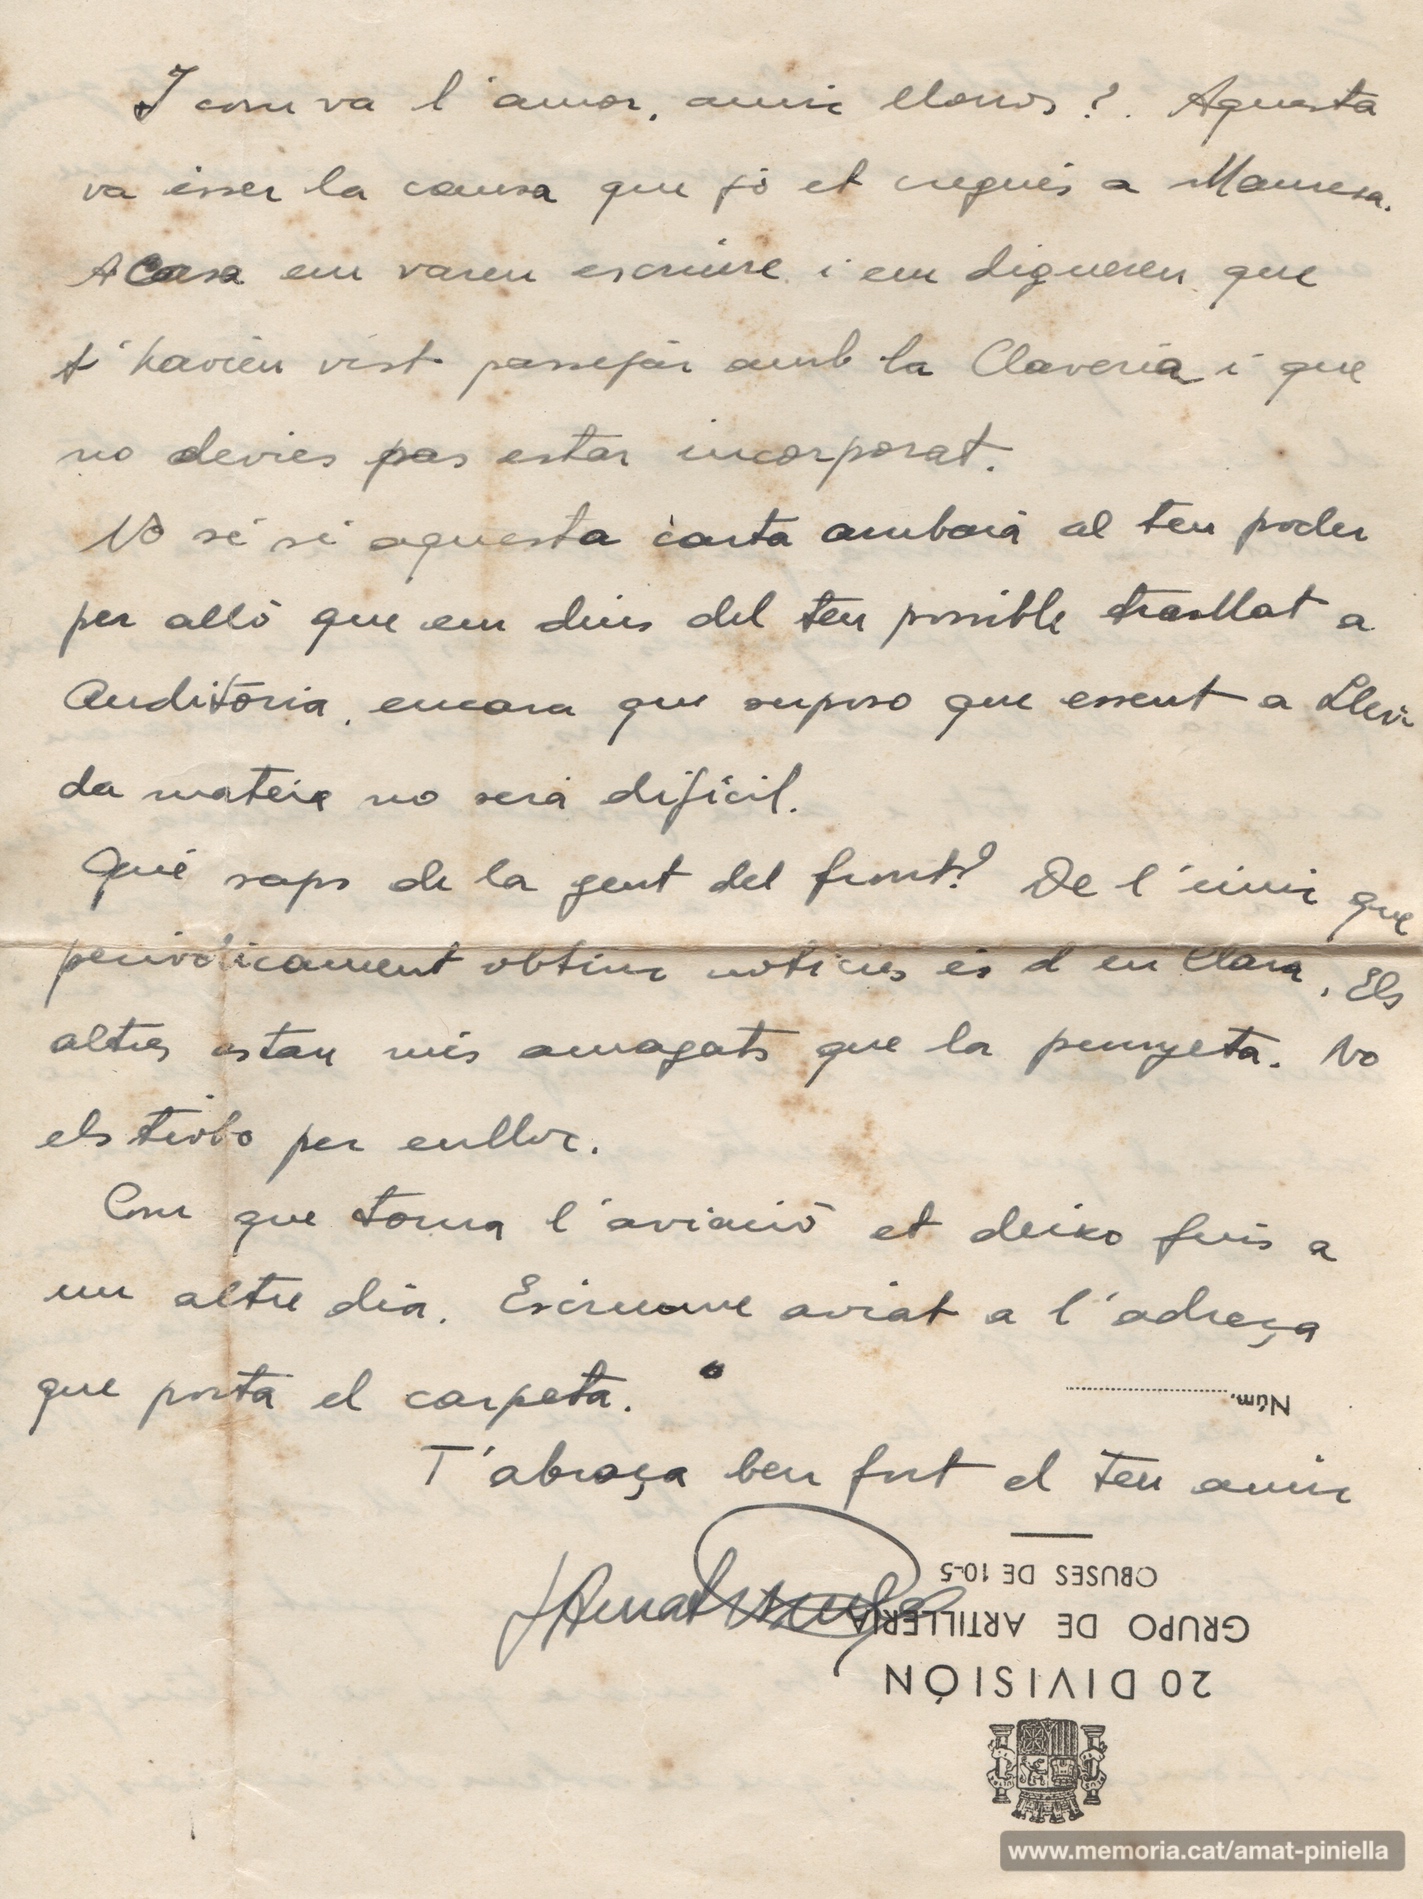 I com va l'amor, amic Llorens?. Aquesta
va ésser la causa que jó et cregués a Manresa.
A casa em varen escriure i em digueren que
t'havien vist passejar amb la Claveria i que
no devies pas estar incorporat.
No sé si aquesta carta arribarà al teu poder
per allò que em dius del teu possible trasllat a
Auditòria, encara que suposo que essent a Llei
da mateix no serà difícil.
Què saps de la gent del front? De l'únic que
periòdicament obtinc notícies és d'en Clara. Els
altres estan més amagats que la punyeta. No
els trobo per enlloc.
Com que torna l'aviació et deixo fins a
un altre dia. Escriu-me aviat a l'adreça
que porta el carpeta.
Núm.
T'abraça ben fort el teu amic
J Amat Piniella
OBUSES DE 10-5
GRUPO DE ARTILLERIA
20 DIVISIÓN
www.memoria.cat/amat-piniella